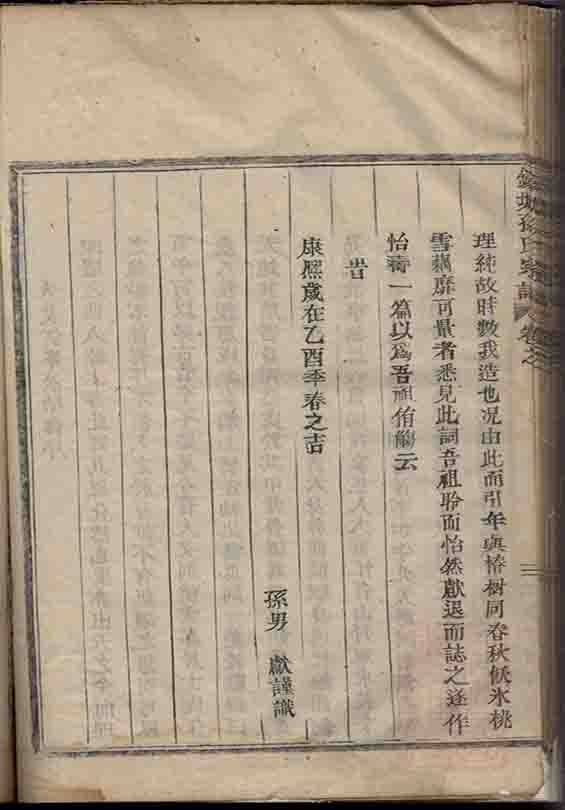 孫氏宗譜 卷之
理純故時數我造也况由此而引年與椿樹同春秋候氷桃
雪藕靡可量者悉見此詞吾祖聆而怡然獻退而誌之遂作
怡壽一篇以爲吾祖侑觴云
昔
康熙歲在乙酉季春之吉
孫男 獻謹識